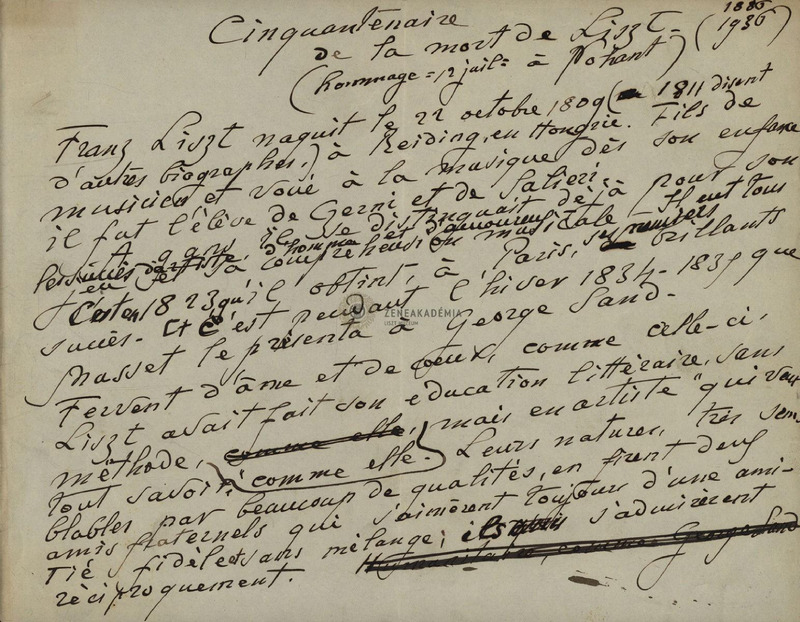 Cinquantenaire
de la mort de Liszt - (1886
1936)
(hommage = 12 juil = à Nohant)
Franz Liszt naquit le 22 octobre 1809 (en 1811 disent
d'autres biographes,) à Reiding, en Hongrie. Fils de
musicien, et voué à la musique dès son enfance
il fut l'élève de Gerni et de Salieri.
il se distinguait déjà pour son
compréhension musicale - Il eut tous
les succès d'artiste, d'homme et d'amoureux
C'est en 1823 qu'il obtint, à Paris, ses premiers brillants
succès - Et c'est pendant l'hiver 1834-1835 que
Musset le présenta à George Sand -
Fervent d'âme et de feux, comme celle-ci,
Liszt avait fait son education littéraire, sans
méthode, comme elle, mais en artiste "qui veut
tout savoir" comme elle. Leurs natures, très sem-
blables par beaucoup de qualités, en firent deux
amis fraternels qui s'aimèrent toujours d'une ami-
tié fidèle et sans mélange; ils s'admirèrent
réciproquement. comme George Sand
ZENEAKADÉMIA
LISZT MÚZEUM